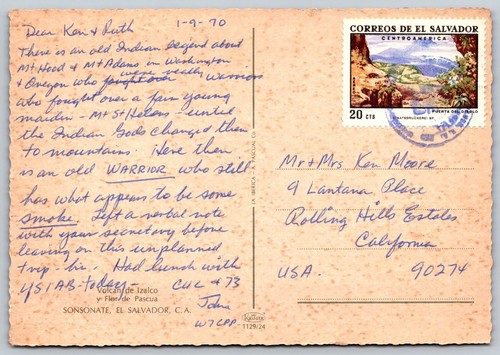 1-9-70
Dear Ken & Ruth
There is an old Indian legend about
Mt Hood & Mt Adams in Washington
& Oregon who fought over were really warriors
who fought over a fair young
maiden - Mt St Helens - until
the Indian Gods changed them
to mountains. Here then
is an old WARRIOR who still
has what appears to be some
smoke. Left a verbal note
with your secretary before
leaving on this unplanned
trip - hi. Had lunch with
YS1AB - today - CUL & 73
John
W7CPP
Volcán de Izalco
y Flor de Pascua
SONSONATE, EL SALVADOR, C. A.
1129/24
CORREOS DE EL SALVADOR
CENTROAMERICA
20 CTS
PUERTA DEL DIABLO
Mr + Mrs Ken Moore
9 Lantana Place
Rolling Hills Estates
California
USA. 90274